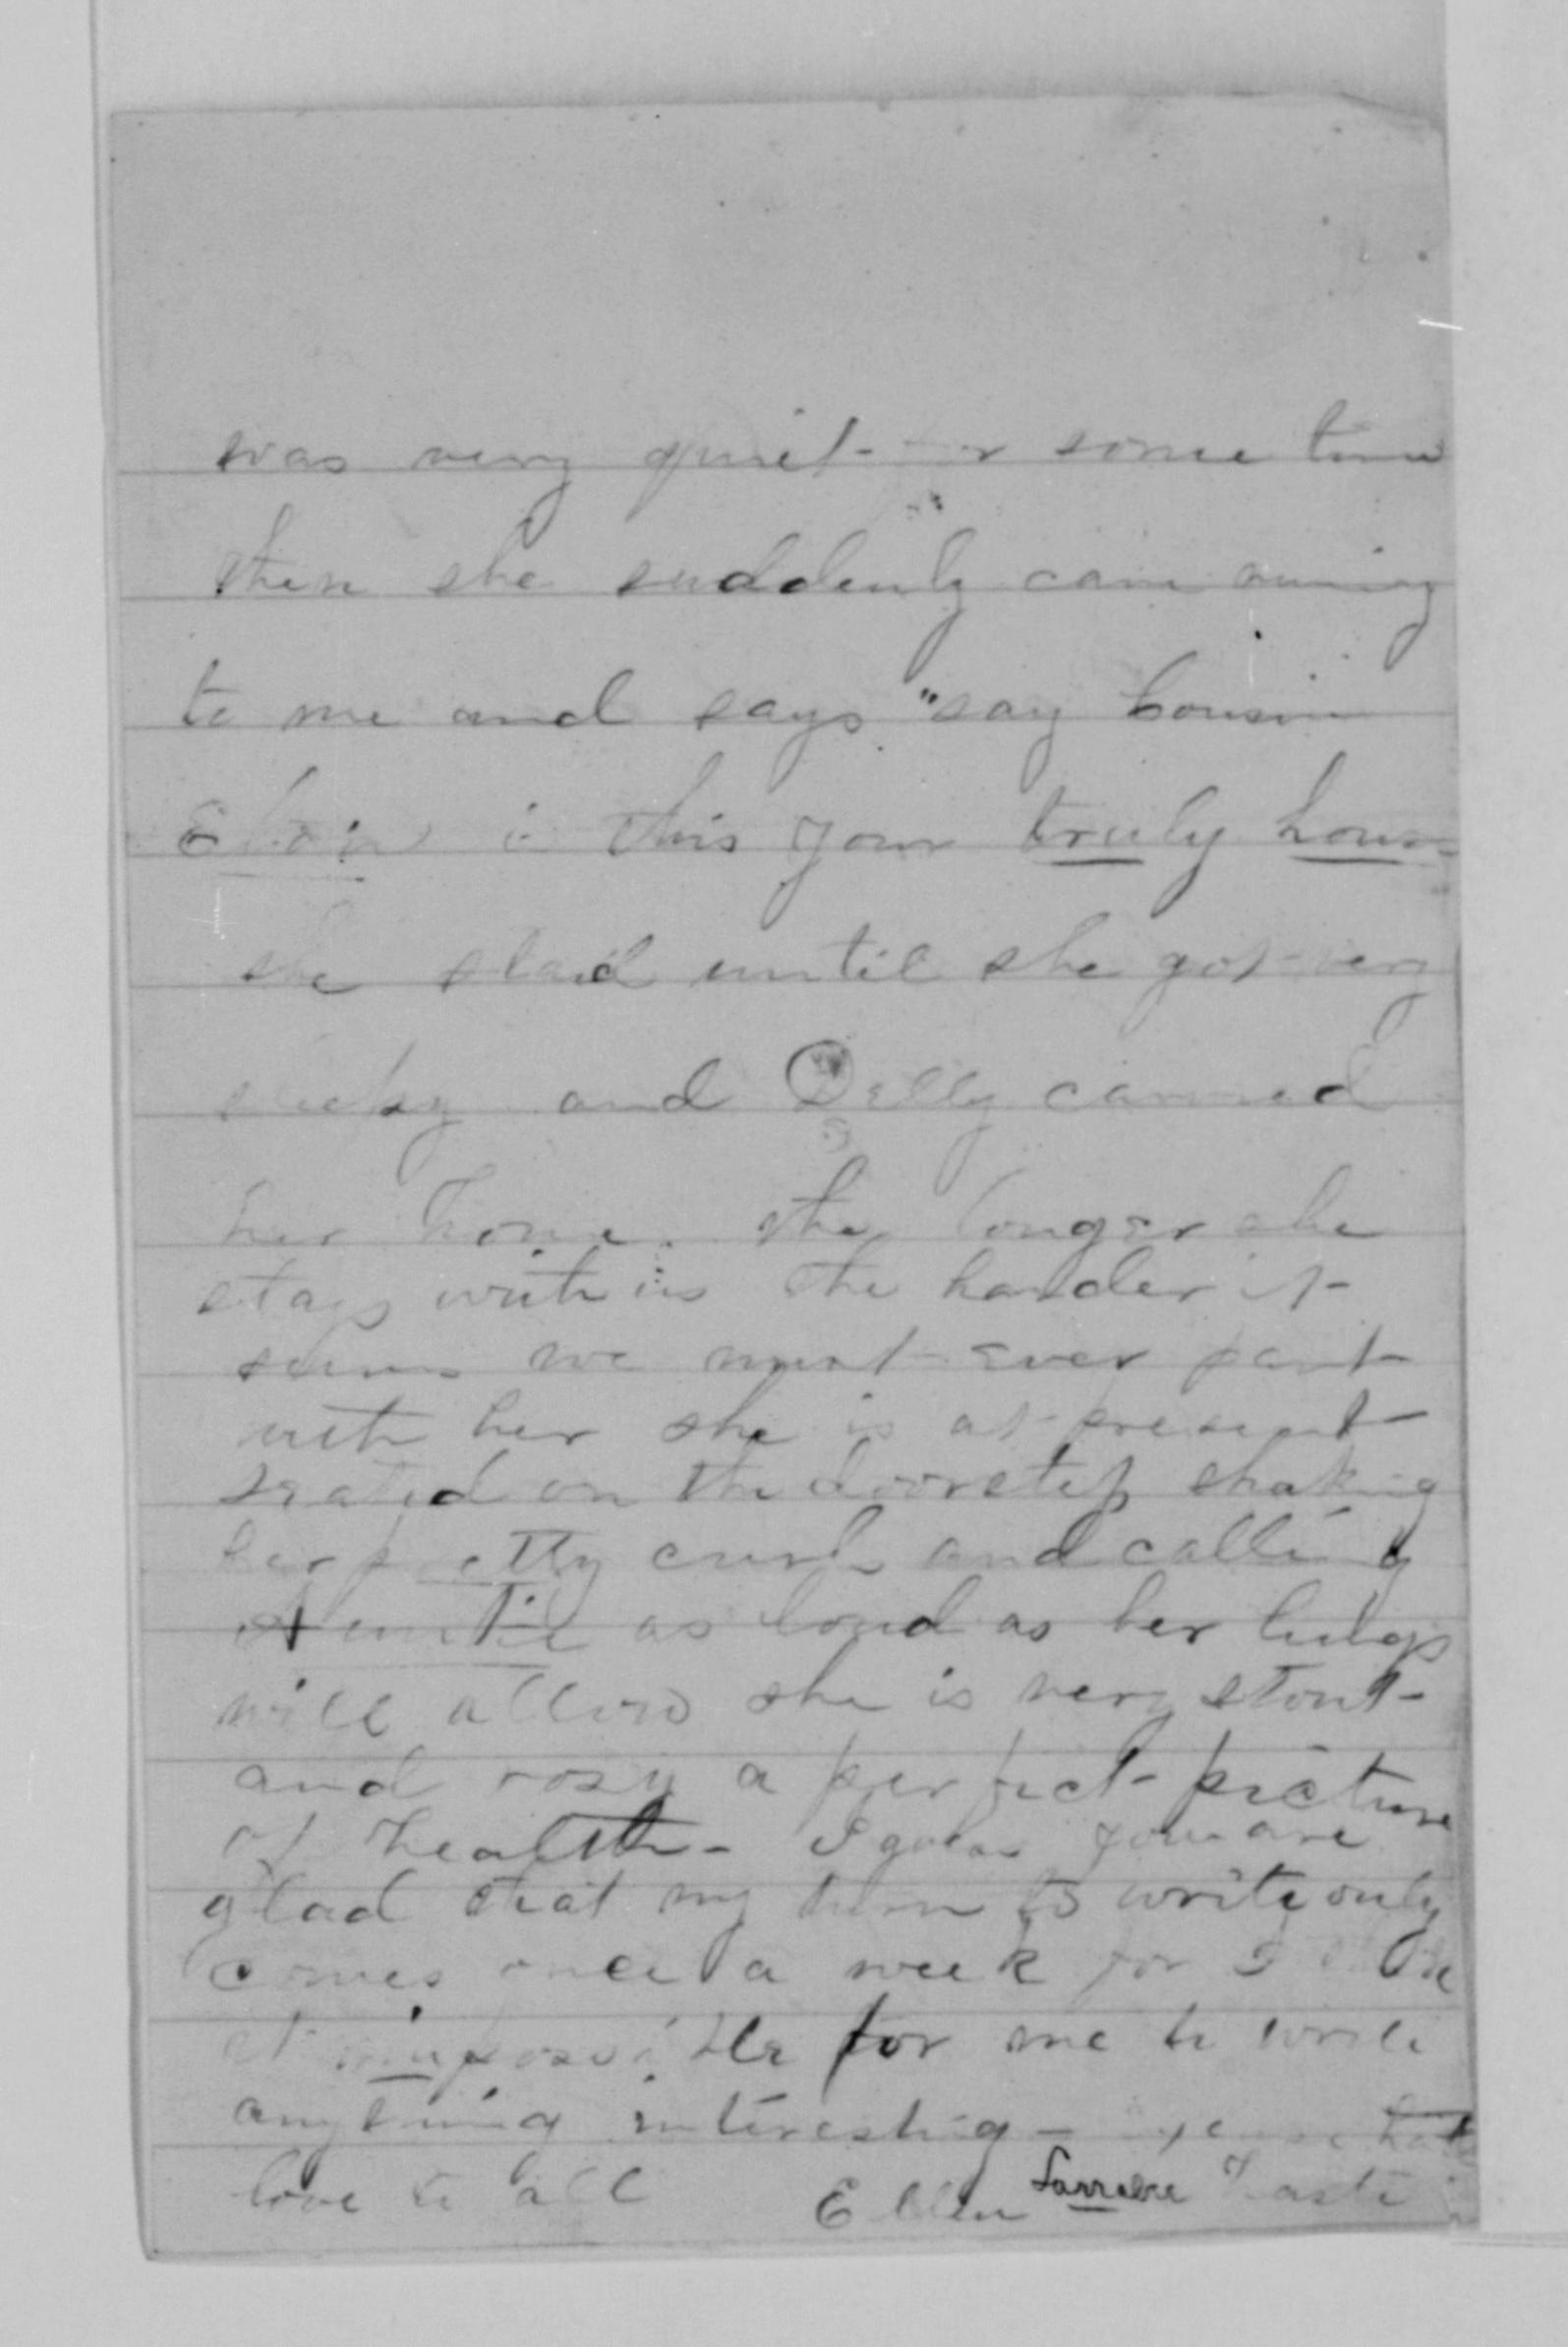 was very quiet for some time
then she suddenly came runing
to me and says "say Cousin
is this your truly house
she staid until she got very
sleepy and Delly carried
her home. the longer she
stays with us the harder it
seems we must ever part
with her she is at present
seated on the doorstep shaking
her pretty curls and calling
Auntie as loud as her lungs
will allow she is very stout
and rosy a perfect picture
of health - I guess you are
glad that my turn to write only
comes once a week for I
it impossible for me to write
anything interesting -
love to all Ellen Larrabee haste